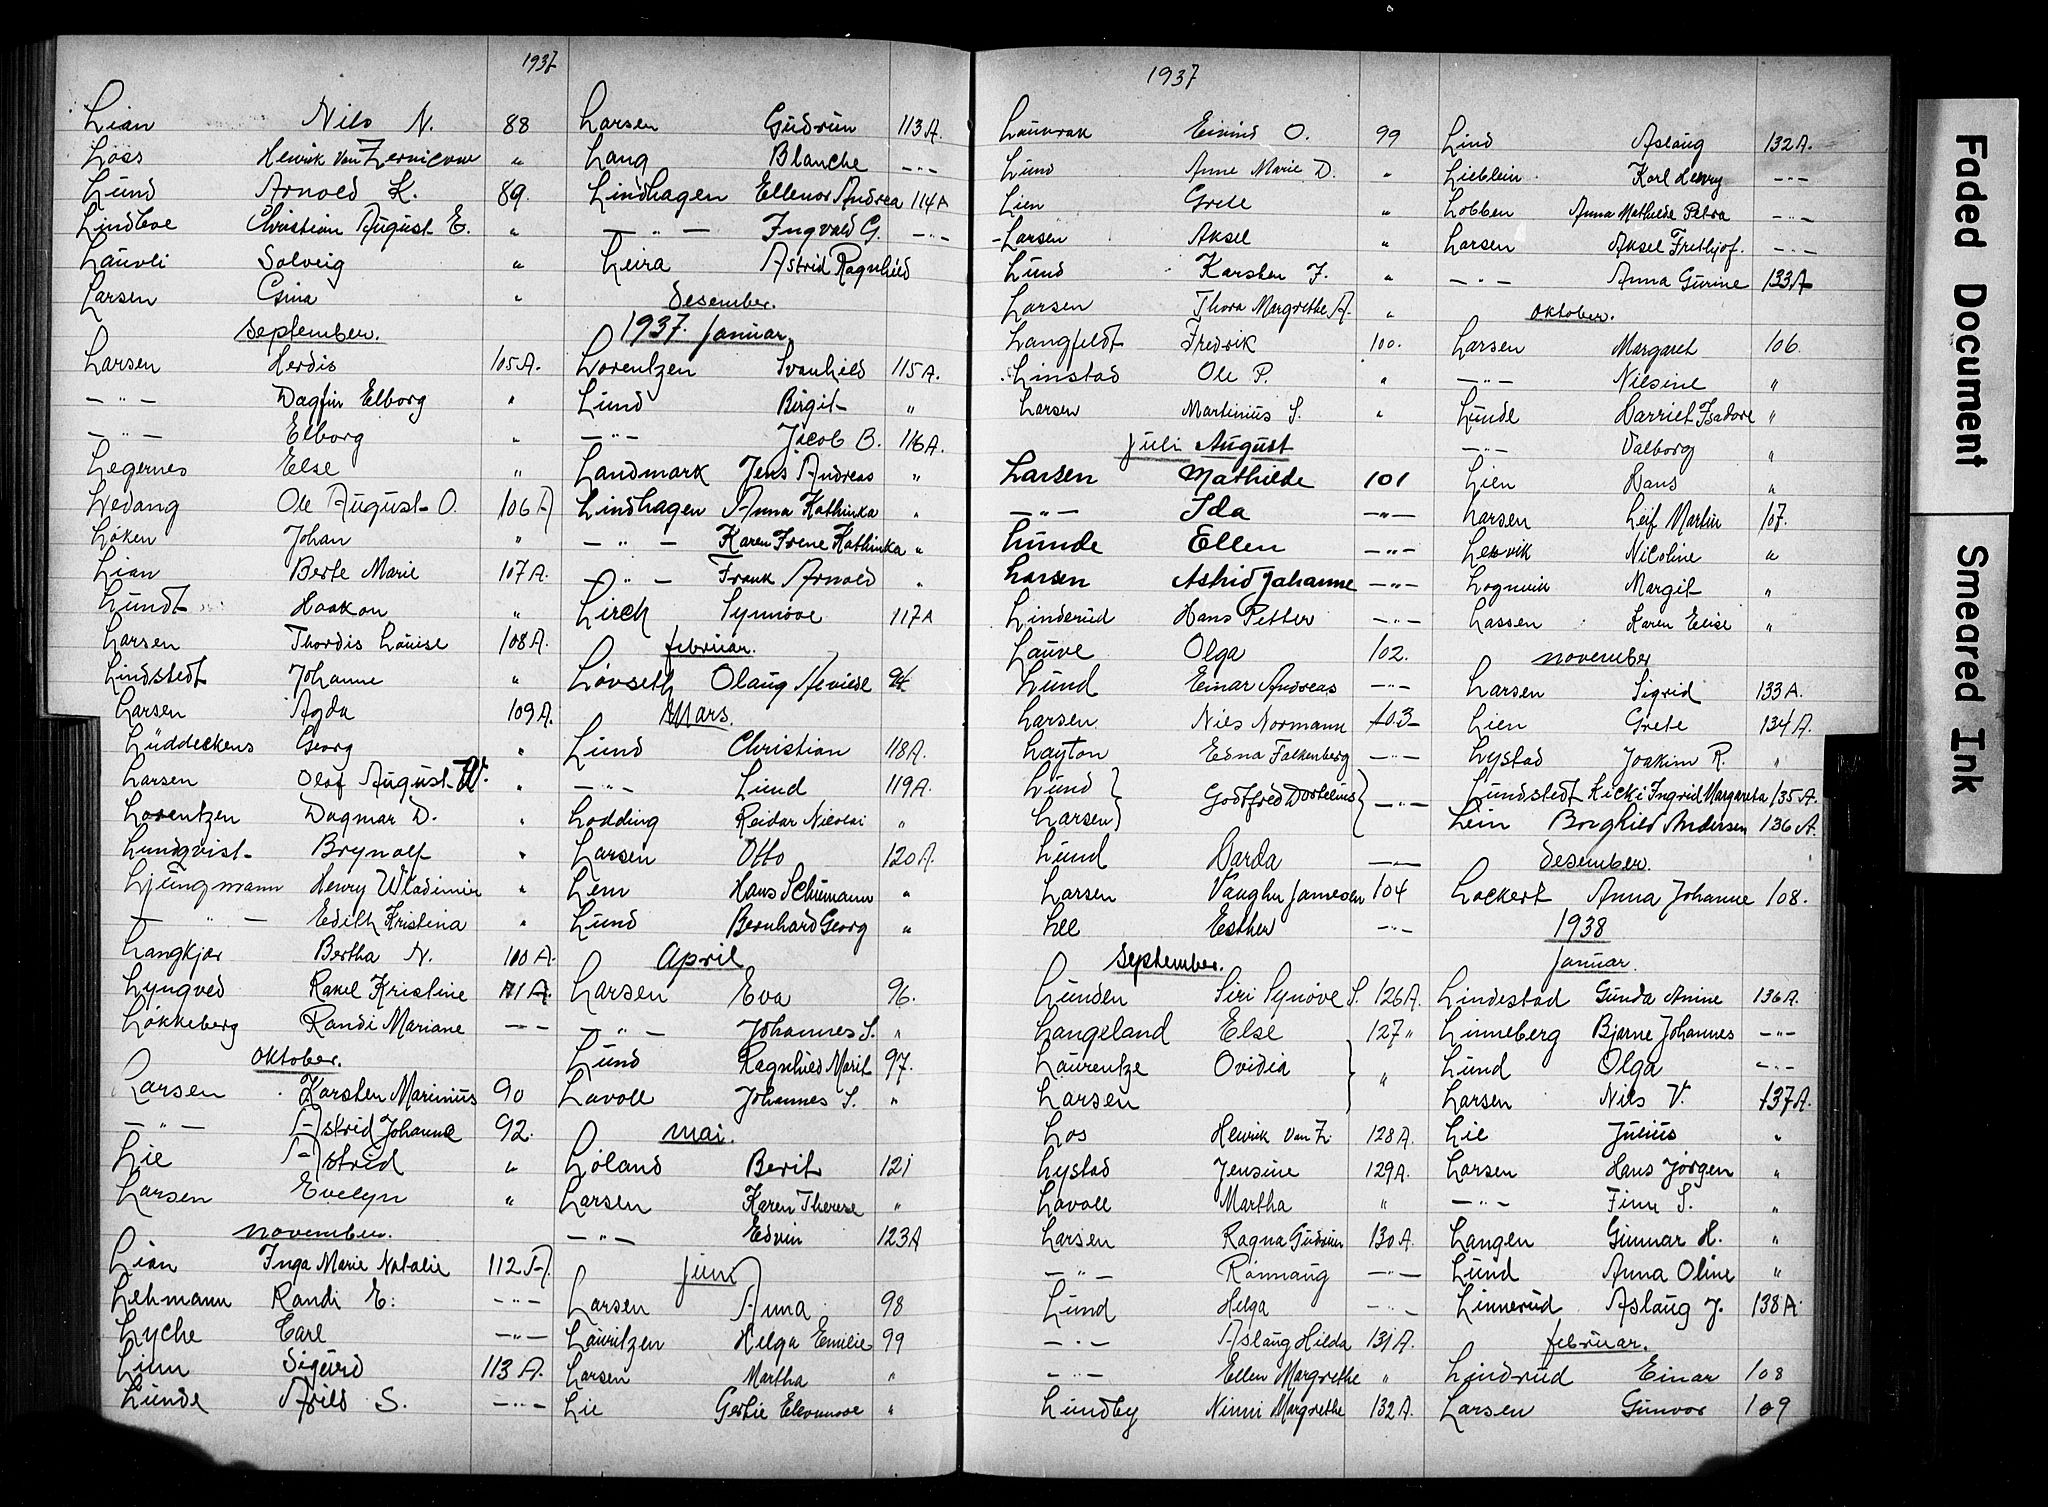 1937
Lian Nils N. 88
Løss Henrik Von Zernicow "
Lund Arnold K. 89
Lindboe Christian August E. "
Lauvli Solveig "
Larsen Gina "
September.
Larsen Herdis 105A.
— " — Dagfin Elborg "
— " — Elborg "
Legernes Else "
Ledang Ole August O. 106A
Løken Johan "
Lian Berte Marie 107A.
Lundt Haakon "
Larsen Thordis Louise 108A.
Lindstedt Johanne "
Larsen Agda 109A.
Lüddeckens Georg "
Larsen Olaf August W. "
Lorentzen Dagmar D. "
Lundqvist Brynolf "
Ljungmann Henry Wladimir "
— " — Edith Kristina "
Langkjær Bertha N. 110A.
Lyngved Rakel Kristine 111A.
Løkkeberg Randi Mariane — " —
Oktober.
Larsen Karsten Marinius 90
— " — Astrid Johanne 92.
Lie Astrid "
Larsen Evelyn "
November.
Lian Inga Marie Natalie 112A.
Lehmann Randi E. — " —
Lyche Carl — " —
Linn Sigurd 113A.
Lunde Arild S. — " —
Larsen Gudrun 113A.
Lang Blanche — " —
Lindhagen Ellenor Andrea 114A
— " — Ingvald G. — " —
Leira Astrid Ragnhild
Desember.
1937. Januar
Lorentzen Svanhild 115A.
Lund Birgit "
— " — Jacob B. 116A.
Landmark Jens Andreas "
Lindhagen Anna Kathinka "
— " — Karen Irene Kathinka "
— " — Frank Arnold "
Lirck Synnøve 117A
Februar.
Løvseth Olaug Alvilde 94
Mars.
Lund Christian 118A.
— " — Lund 119A.
Lodding Reidar Nicolai "
Larsen Otto 120A.
Lem Hans Schumann "
Lund Bernhard Georg "
April
Larsen Eva 96.
— " — Johannes S. "
Lund Ragnhild Marit 97.
Lavoll Johannes S. "
Mai.
Løland Berit 121
Larsen Karen Therese "
— " — Edvin 123A
Juni
Larsen Anna 98
Lauritzen Helga Emilie 99
Larsen Martha "
Lie Gertie Elvonore "
1937
Lauvrak Eivind O. 99
Lund Anne Marie D. "
Lien Grete "
Larsen Aksel "
Lund Karsten J. "
Larsen Thora Margrethe A. "
Langfeldt Fredrik 100.
Linstad Ole P. "
Larsen Martinius S. "
Juli August
Larsen Mathilde 101
— " — Ida — " —
Lunde Ellen — " —
Larsen Astrid Johanne — " —
Linderud Hans Petter — " —
Lauve Olga 102.
Lund Einar Andreas — " —
Larsen Nils Normann 103
Layton Edna Falkenberg — " —
Lund } Godtfred Dortelius } — " —
Larsen }
Lund Darda — " —
Larsen Vaughn Jamesen 104
Lee Esther — " —
September.
Lunden Siri Synøve S. 126A.
Langeland Else 127 "
Laurentze Ovidia } "
Larsen
Los Henrik Von Z. 128A.
Lystad Jensine 129A.
Lavoll Martha "
Larsen Ragna Gudrun 130A.
— " — Rønnaug — " —
Lund Helga — " —
— " — Aslaug Hilda 131A.
— " — Ellen Margrethe "
Lundby Ninni Margrethe 132A.
Lind Aslaug 132A.
Lieblein Karl Henry — " —
Lobben Anna Mathilde Petra — " —
Larsen Aksel Frithjof. — " —
— " — Anna Gurine 133A
Oktober.
Larsen Margaret 106.
— " — Nilsine "
Lunde Harriet Isadore "
— " — Valborg "
Lien Hans "
Larsen Leif Martin 107.
Lekvik Nicoline "
Lognvik Margit "
Lassen Karen Elise "
November
Larsen Sigrid 133A.
Lien Grete 134A.
Lystad Joakim R. "
Lundstedt Kicki Ingrid Margareta 135A.
Lein Borghild Andersen 136A.
Desember.
Lockert Anna Johanne 108.
1938
Januar.
Lindestad Gunda Anine 136A.
Linneberg Bjarne Johannes — " —
Lund Olga — " —
Larsen Nils V. 137A.
Lie Julius "
Larsen Hans Jørgen "
— " — Finn S. "
Langen Gunnar H. "
Lund Anna Oline "
Linnerud Aslaug J. 138A.
Februar.
Lindrud Einar 108
Larsen Gunvor 109
Faded Document
Smeared Ink